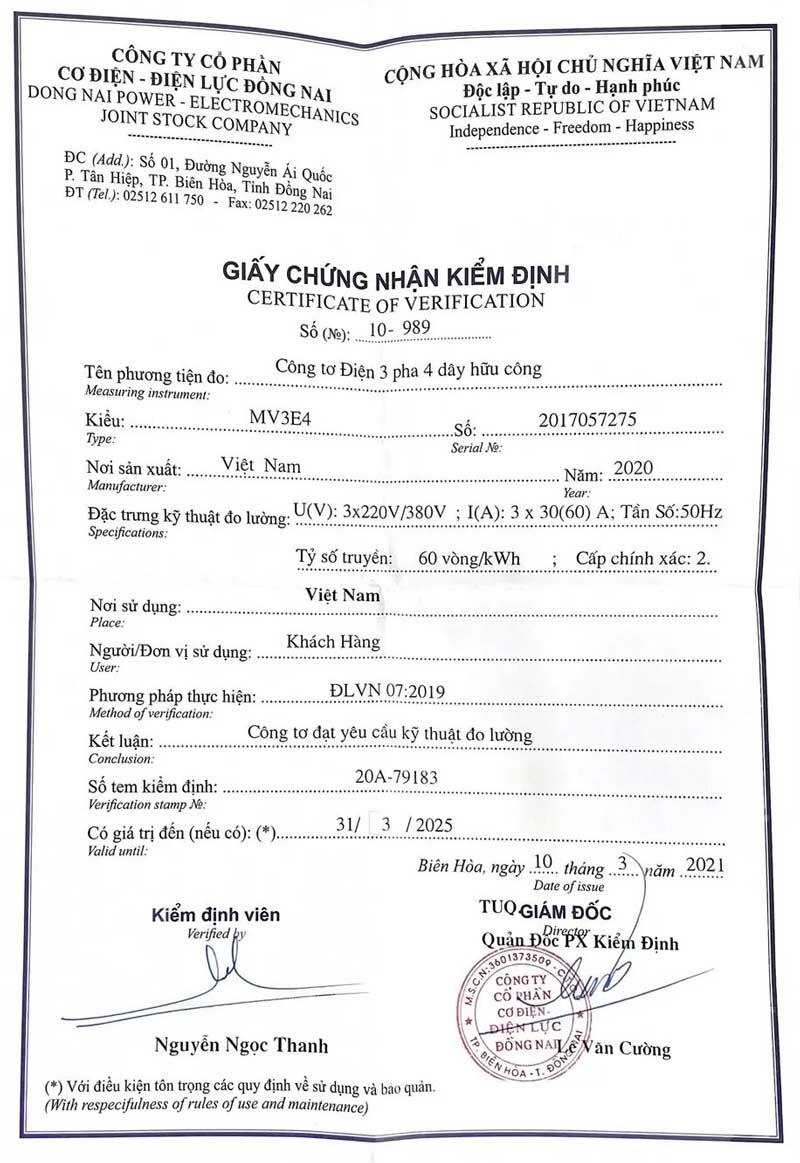 CÔNG TY CỔ PHẦN
CƠ ĐIỆN - ĐIỆN LỰC ĐỒNG NAI
DONG NAI POWER - ELECTROMECHANICS
JOINT STOCK COMPANY
ĐC (Add.): Số 01, Đường Nguyễn Ái Quốc
P. Tân Hiệp, TP. Biên Hòa, Tỉnh Đồng Nai
ĐT (Tel.): 02512 611 750 - Fax: 02512 220 262
CỘNG HÒA XÃ HỘI CHỦ NGHĨA VIỆT NAM
Độc lập - Tự do - Hạnh phúc
SOCIALIST REPUBLIC OF VIETNAM
Independence - Freedom - Happiness
GIẤY CHỨNG NHẬN KIỂM ĐỊNH
CERTIFICATE OF VERIFICATION
Số (№): 10- 989
Tên phương tiện đo: Công tơ Điện 3 pha 4 dây hữu công
Measuring instrument:
Kiểu: MV3E4 Số: 2017057275
Type: Serial №:
Nơi sản xuất: Việt Nam Năm: 2020
Manufacturer: Year:
Đặc trưng kỹ thuật đo lường: U(V): 3x220V/380V ; I(A): 3 x 30(60) A; Tần Số:50Hz
Specifications:
Tỷ số truyền: 60 vòng/kWh ; Cấp chính xác: 2.
Nơi sử dụng: Việt Nam
Place:
Người/Đơn vị sử dụng: Khách Hàng
User:
Phương pháp thực hiện: ĐLVN 07:2019
Method of verification:
Kết luận: Công tơ đạt yêu cầu kỹ thuật đo lường
Conclusion:
Số tem kiểm định: 20A-79183
Verification stamp №:
Có giá trị đến (nếu có): (*) 31/ 3 / 2025
Valid until:
Biên Hòa, ngày 10 tháng 3 năm 2021
Date of issue
Kiểm định viên
Verified by
Nguyễn Ngọc Thanh
TUQ.GIÁM ĐỐC
Director
Quản Đốc PX Kiểm Định
M.S.C.N:3601373509
CÔNG TY
CỔ PHẦN
CƠ ĐIỆN-
ĐIỆN LỰC
ĐỒNG NAI
TP. BIÊN HÒA - T. ĐỒNG NAI
Lê Văn Cường
(*) Với điều kiện tôn trọng các quy định về sử dụng và bảo quản.
(With respecifulness of rules of use and maintenance)